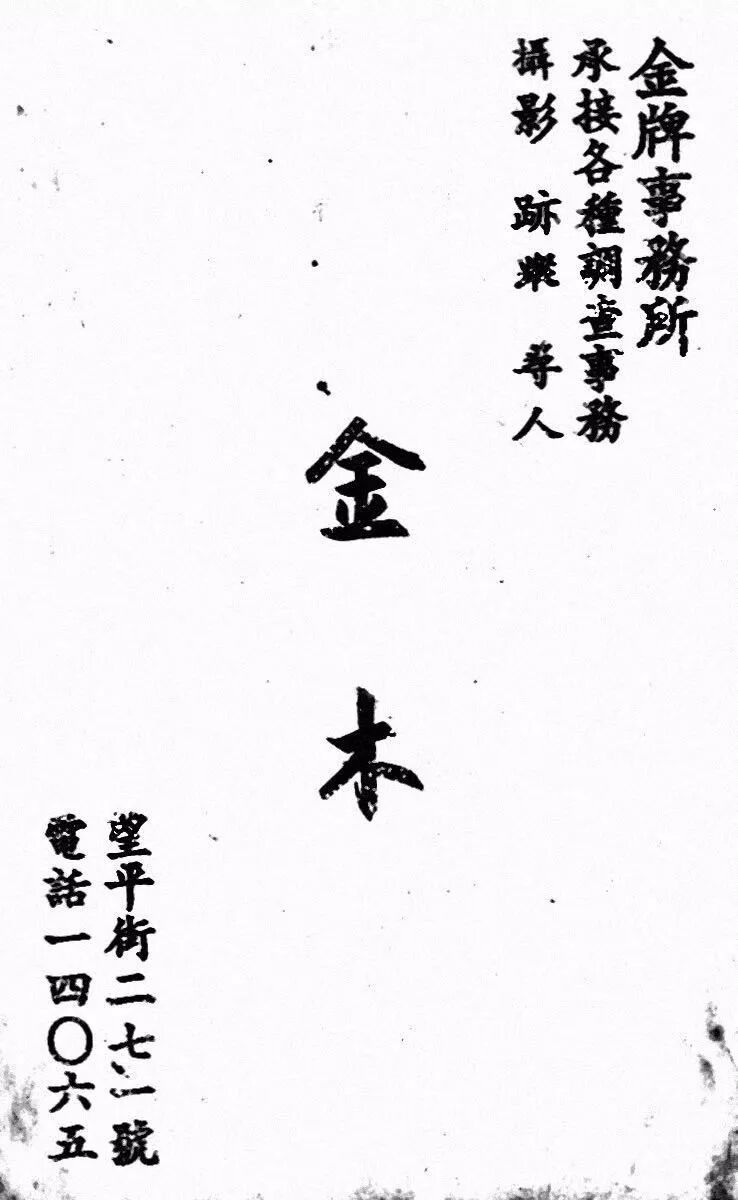 金牌事務所
承接各種調查事務
攝影 跡蹤 尋人
金木
望平街二七一號
電話一四〇六五